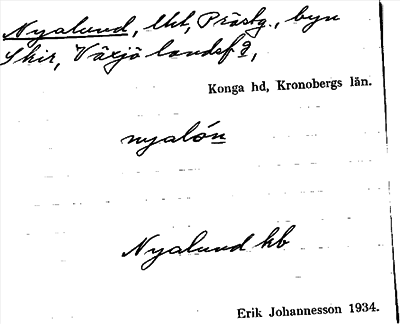 Nyalund, lht, Prästg., byn
Skir, Växjö landsf.,
Konga hd, Kronobergs län.
nyalón
Nyalund hb
Erik Johannesson 1934.